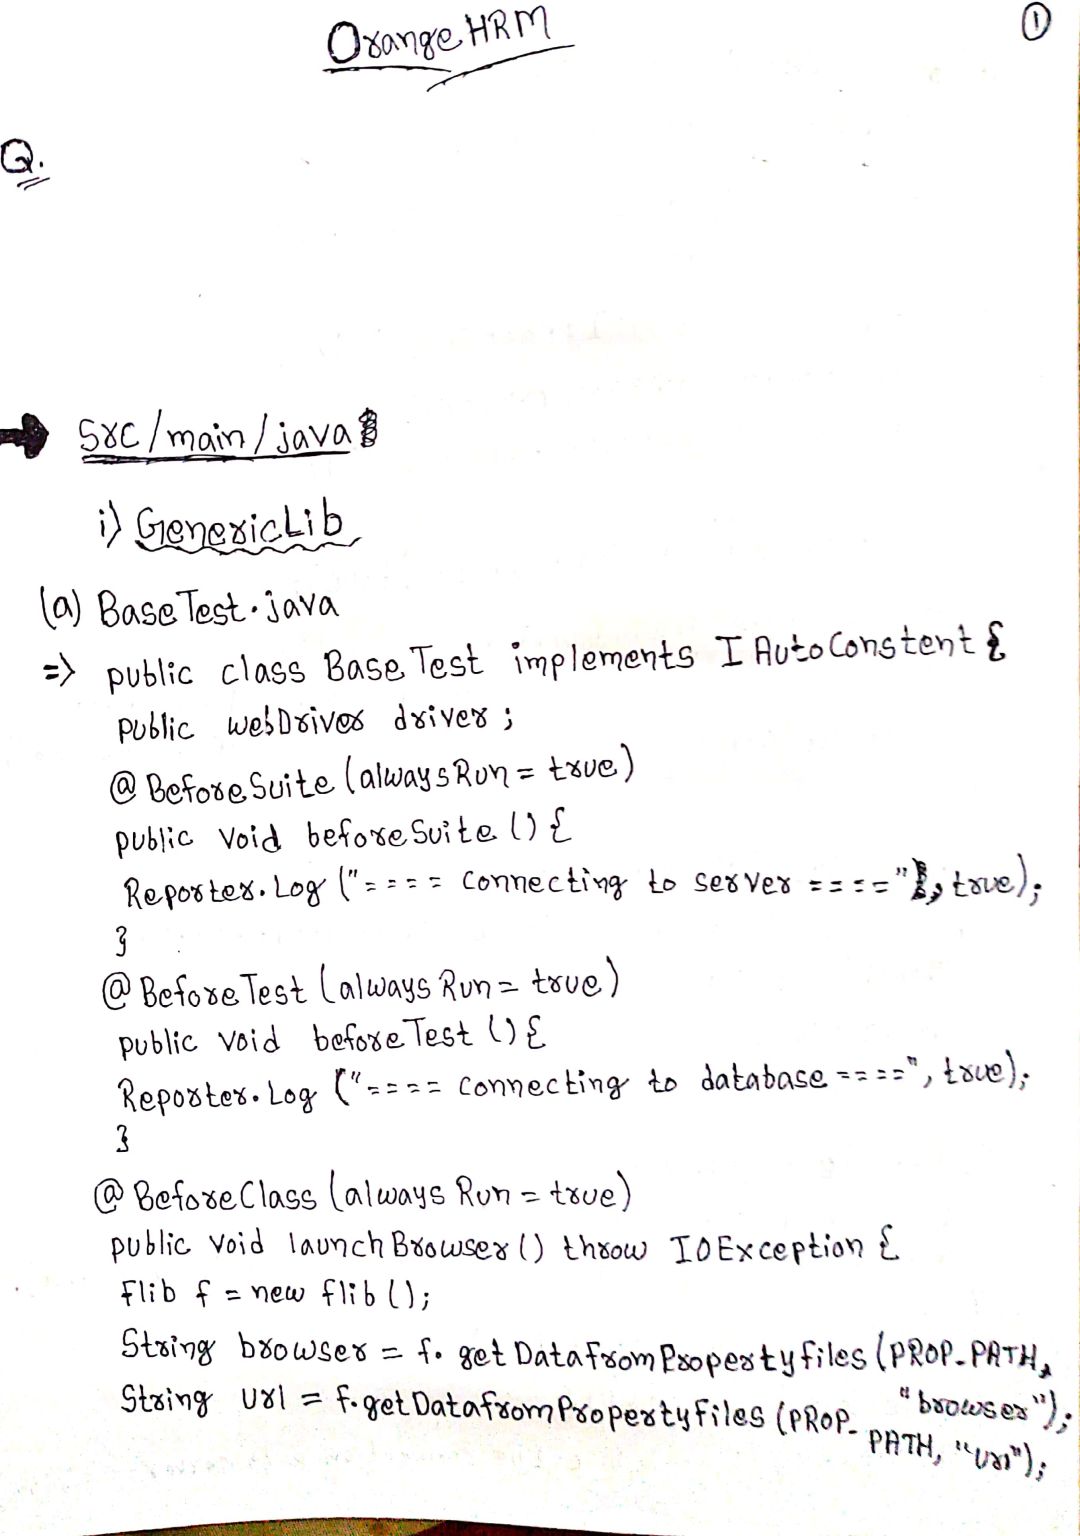 OrangeHRM
1
Q.
src/main/java
i) GenericLib
(a) BaseTest.java
=> public class BaseTest implements IAutoConstent {
public webDriver driver;
@BeforeSuite (alwaysRun = true)
public void beforeSuite () {
Reporter.Log ("==== connecting to server ====", true);
}
@BeforeTest (alwaysRun = true)
public void beforeTest () {
Reporter.Log ("==== connecting to database ====", true);
}
@BeforeClass (alwaysRun = true)
public void launchBrowser () throw IOException {
Flib f = new flib ();
String browser = f.getDatafromPropertyfiles (PROP_PATH,
"browser");
String url = f.getDatafromPropertyfiles (PROP_
PATH, "url");